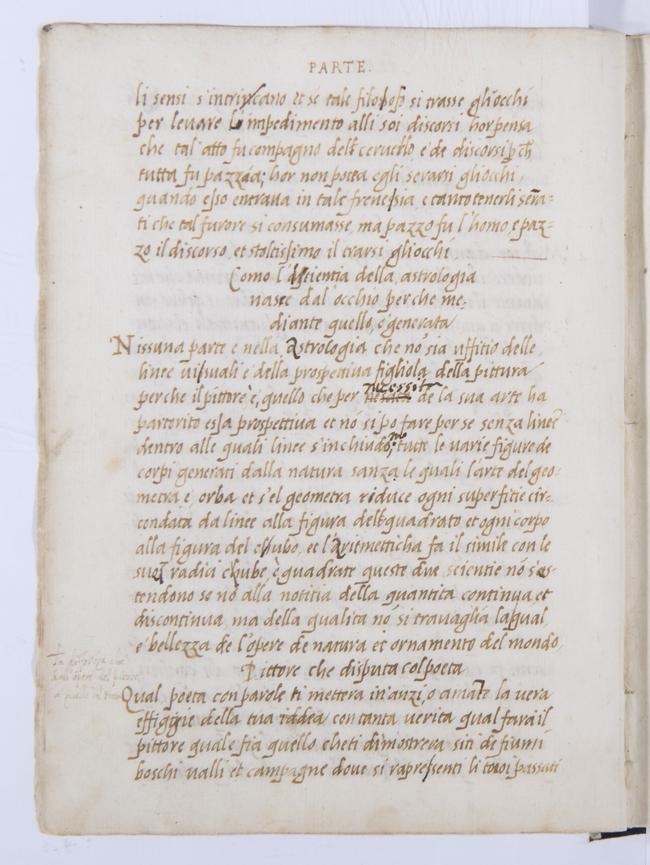 PARTE.
li sensi s'intrincano et se tale filosofo si trasse gliocchi
per levare lo impedimento alli soi discorsi hor pensa
che tal atto fu compagno del cervello e de discorsi
tutta fu pazzia; hor non potea egli serarsi gliocchi,
quando esso entrava in tale frenesia e tanto tenerli sera=
ti che tal furore si consumasse, ma pazzo fu l'homo, e paz=
zo il discorso, et stoltissimo il trarsi gliocchi
Como la scientia della, astrologia
nasce dal'occhio perche me=
diante quello, e generata
Nissuna parte e nella Astrologia che nõ sia uffitio delle
linee visuali e della prospettiva figliola della pittura
necessita
perche il pittore è, quello che per de la sua arte ha
partorito essa prospettiva et nõ si po fare per se senza linee
dentro alle quali linee s'inchiudono tutte le varie figure de
corpi generati dalla natura sanza le quali l'arte del geo=
metra e, orba et s'el geometra riduce ogni superfitie cir=
condata da linee alla figura del quadrato et ogni corpo
alla figura del chubo, et l'Aritmetticha fa il simile con le
sue radici chube, è quadrate queste due scientie nõ s'es=
tendono se nõ alla notitia della quantita continua et
discontinua, ma della qualita nõ si travaglia laqual
e' bellezza de l'opere de natura et ornamento del mondo,
Pittore che disputa col poeta
Qual poeta con parole ti mettera in'anzi, o amãte la vera
effiggie della tua iddea con tanta verita qual fara il
pittore quale fia quello che ti dimostrera siti de fiumi
boschi valli et campagne dove si rapresenti li tuoi passati